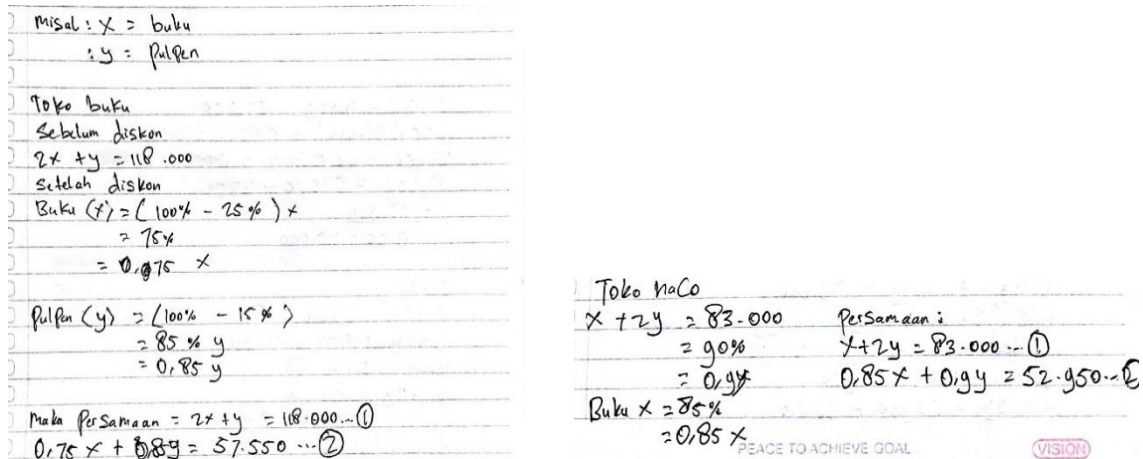 Misal : x = buku
: y = Pulpen
Toko buku
Sebelum diskon
2x + y = 118.000
Setelah diskon
Buku (x) = (100% - 25%) x
= 75%
= 0,75 x
Pulpen (y) = (100% - 15%)
= 85% y
= 0,85 y
Maka Persamaan = 2x + y = 118.000...①
0,75 x + 0,85y = 57.550 ...②
Toko naCo
x + 2y = 83.000
= 90%
= 0,9y
Buku x = 85%
= 0,85 x
Persamaan :
x + 2y = 83.000 ...①
0,85x + 0,9y = 52.950...②
PEACE TO ACHIEVE GOAL
VISION